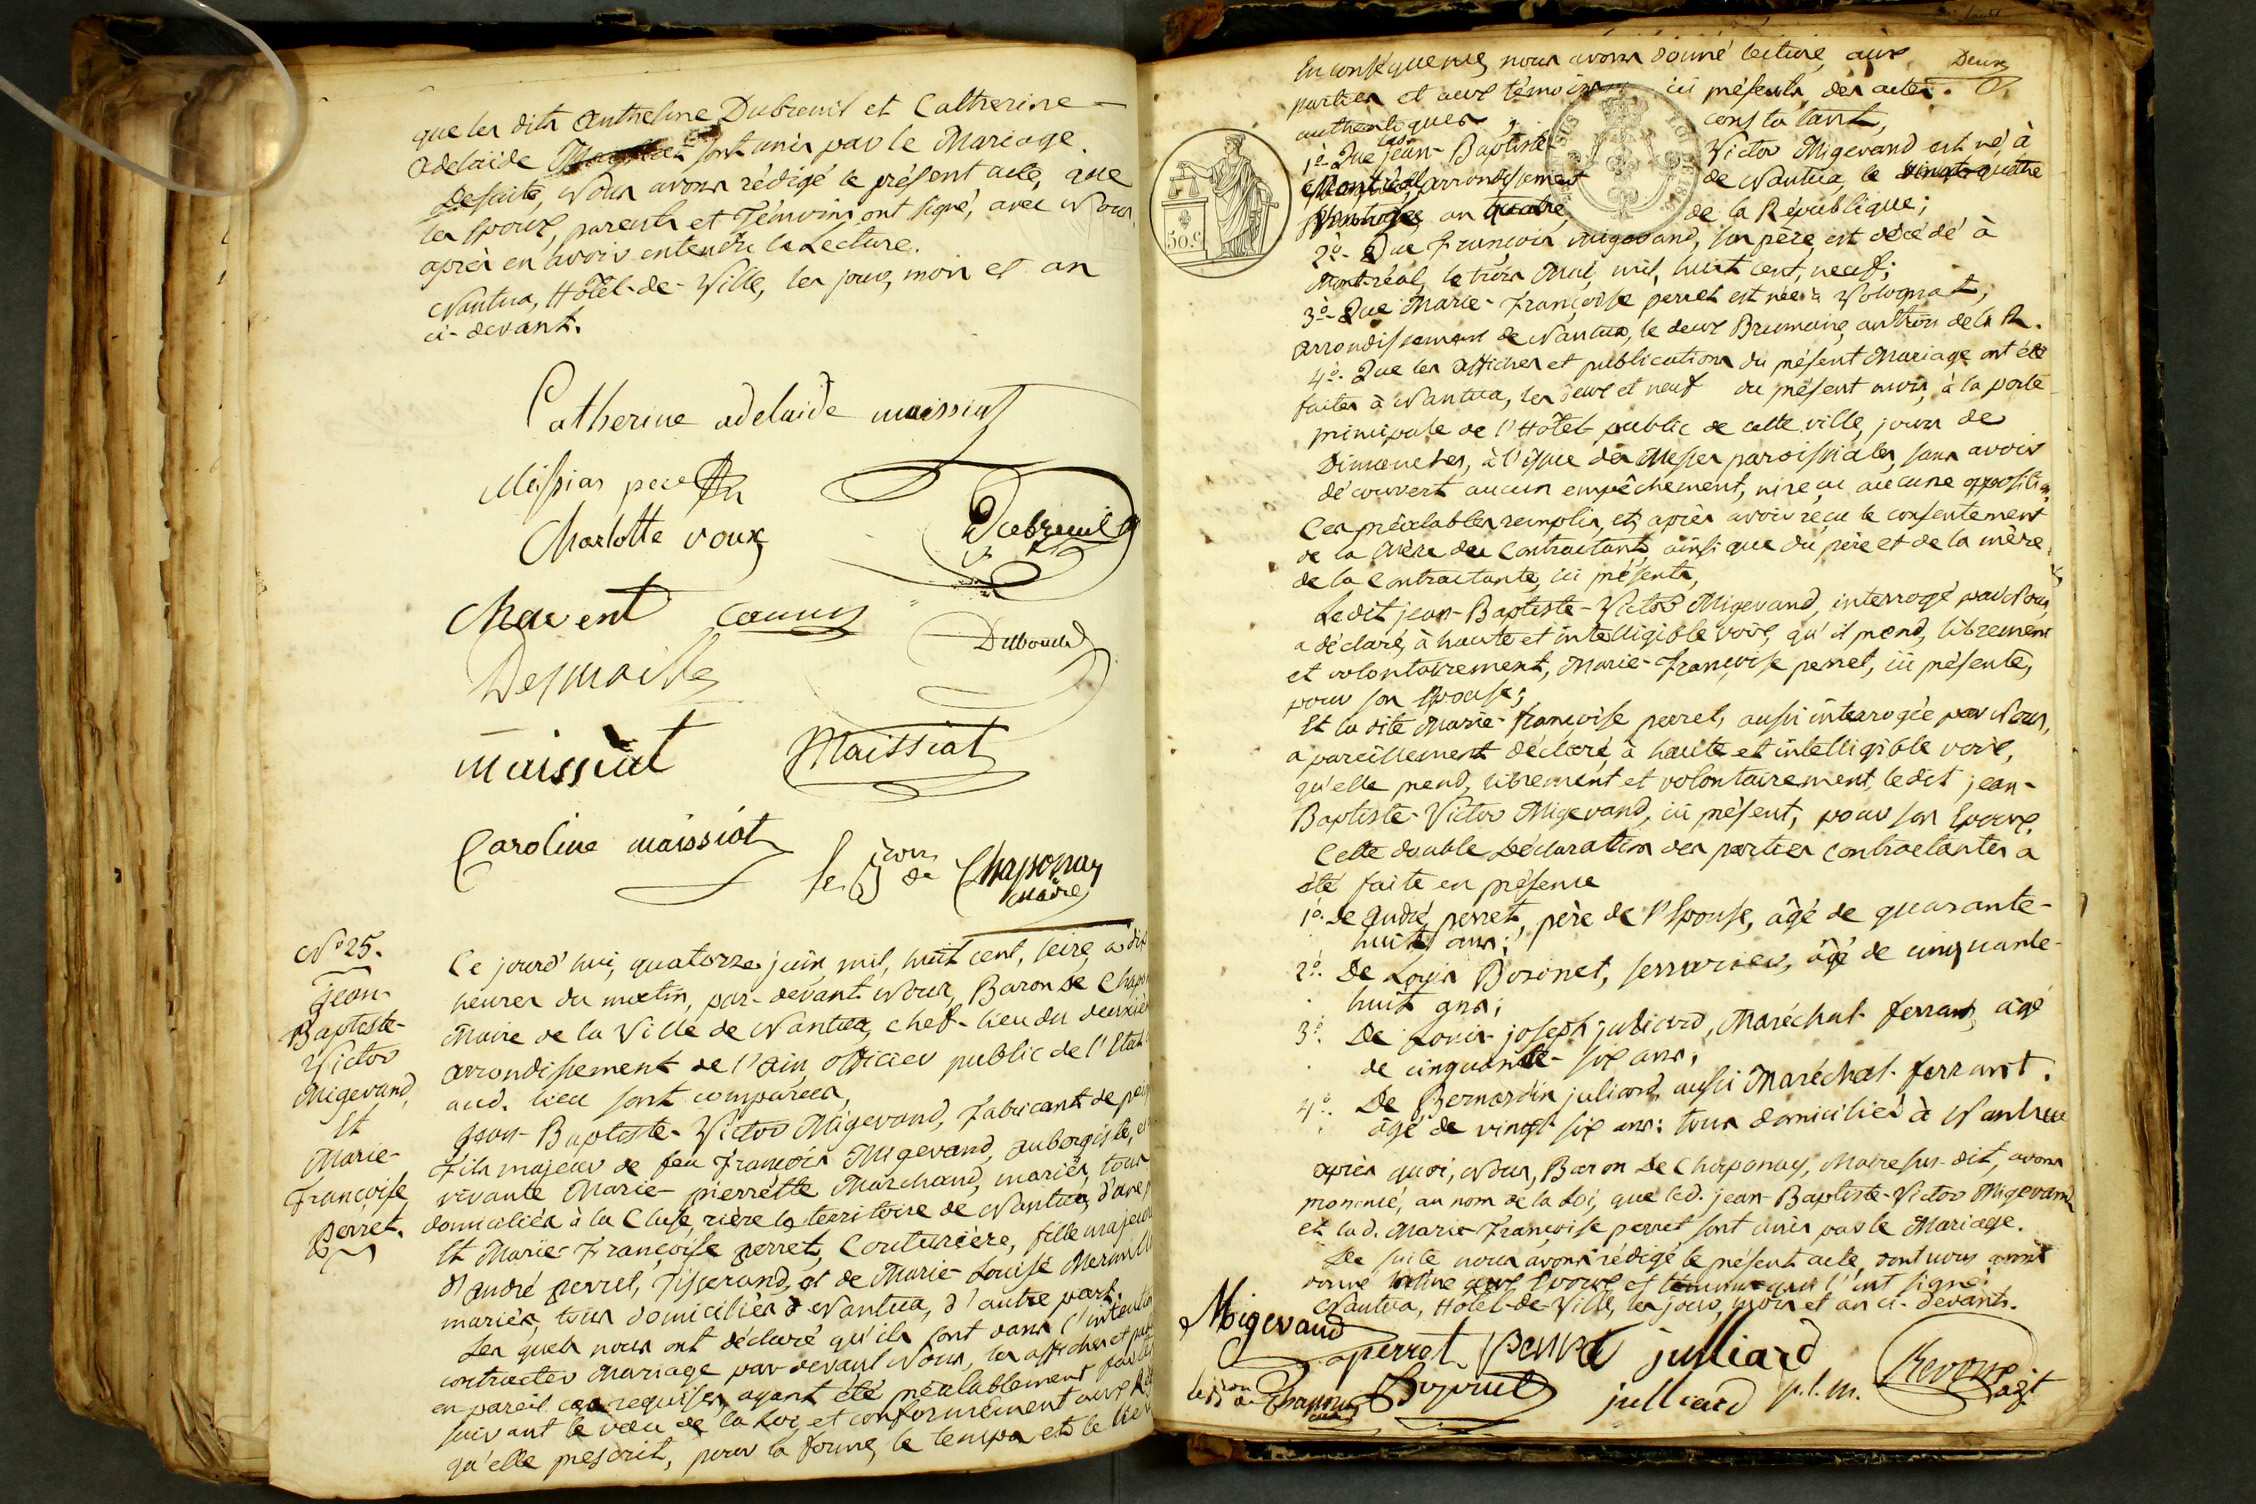 que les dits Anthelme Dubreuil et Catherine
Adelaïde sont unis par le Mariage.
De suite, Nous avons rédigé le présent acte, que
les Epoux, parents et Témoins, ont signé, avec Nous,
après en avoir entendu la Lecture.
Nantua, Hôtel-de-Ville, les jour, mois et an
ci-devant.
Catherine adelaide maissiat
père
Charlotte roux
Dubreuil
Chavent
maissiat
Maissiat
Caroline maissiat
le Bon de Chaponay
maire
No 25.
Jean-
Baptiste-
Victor
Migevand,
Et
Marie-
Françoise
Perret.
Ce jourd'hui, quatorze juin, mil, huit cent, seize, à dix
heures du matin, par-devant Nous, Baron De
Maire de la Ville de Nantua, chef-lieu du
arrondissement de l'Ain, officier public de l'Etat
aud. lieu sont comparus,
Jean-Baptiste-Victor Migevand, Fabricant de
Fils majeur de feu François Migevand, aubergiste,
vivante Marie-pierrette Marchand, mariés, tous
domiciliés à la Cluse, rière le territoire de Nantua, d'une
Et Marie-Françoise perret, Couturière, fille
d'andré perret, Tisserand, et de Marie-Louise
mariés, tous domiciliés à Nantua, d'autre part.
Les quels nous ont déclaré qu'ils sont dans
contracter Mariage par-devant Nous, les affiches et
en pareil cas requises, ayant été préalablement
suivant le vœu de la Loi, et conformément aux
qu'elle prescrit, pour la forme, le temps et le lieu
Deux
En conséquence, nous avons donné lecture, aux
parties et aux témoins ici présents, des actes
authentiques constatant,
1o- Que jean-Baptiste- Victor Migevand est né, à
Montréal, arrondissement de Nantua, le vingt-quatre
an quatre de la République;
2o- Que François Migevand, son père, est décédé à
Montréal, le trois Mai, mil, huit cent, neuf;
3o- Que Marie-Françoise perret est née à Volognat,
arrondissement de Nantua, le deux Brumaire, an trois de la R.
4o- Que les affiches et publications du présent Mariage ont été
faites à Nantua, les deux et neuf du présent mois, à la porte
principale de l'Hôtel public de cette ville, jours de
Dimanches, à l'issue des Messes paroissiales, sans avoir
découvert aucun empêchement, ni reçu aucune opposition.
Ces préalables remplis, et, après avoir reçu le consentement
de la Mère du Contractant, ainsi que du père et de la mère
de la Contractante, ici présents,
Ledit jean-Baptiste-Victor Migevand, interrogé par Nous,
a déclaré, à haute et intelligible voix, qu'il prend, librement
et volontairement, Marie-Françoise perret, ici présente,
pour son Epouse;
Et la dite Marie-Françoise perret, aussi interrogée par Nous,
a pareillement déclaré, à haute et intelligible voix,
qu'elle prend, librement et volontairement, ledit jean-
Baptiste-Victor Migevand, ici présent, pour son Epoux.
Cette double Déclaration des parties Contractantes a
été faite en présence
1o. De andré perret, père de l'Epouse, âgé de quarante-
huit ans;
2o. De Louis Bosonet, serrurier, âgé de cinquante-
huit ans;
3o. De Louis-joseph juliard, Maréchal-ferrant, âgé
de cinquante-six ans;
4o. De Bernardin juliard, aussi Maréchal-ferrant.
âgé de vingt six ans: tous domiciliés à Nantua
après quoi, Nous, Baron De Chaponay, Maire sus-dit, avons
prononcé, au nom de la Loi, que led. jean-Baptiste-Victor Migevand
et lad. Marie-Françoise perret sont unis par le Mariage.
De suite nous avons rédigé le présent acte, dont nous avons
donné lecture aux Epoux et témoins qui l'ont signé.
Nantua, Hôtel-de-Ville, les jour, mois et an ci-devants.
Migevand
aperret perret julliard
julliard p.l.m.
50.c